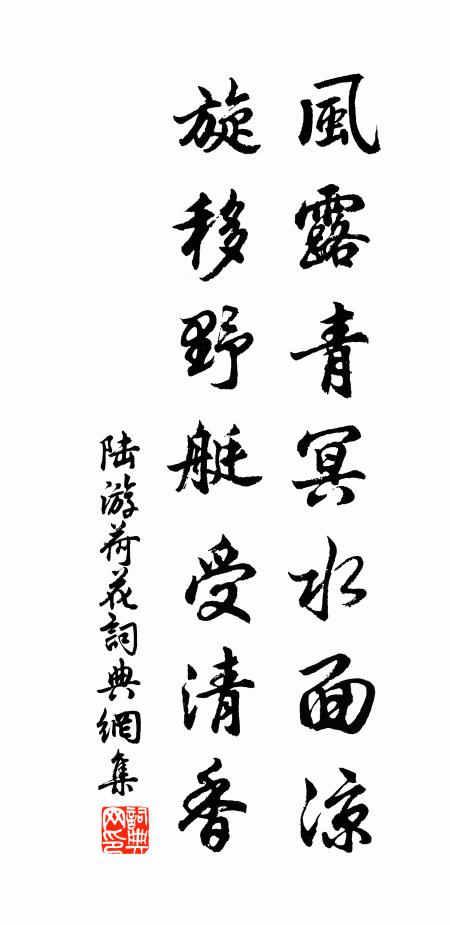 風露青冥水面涼
旋移野艇受清香
陸游荷花詞典網集
詞典网印